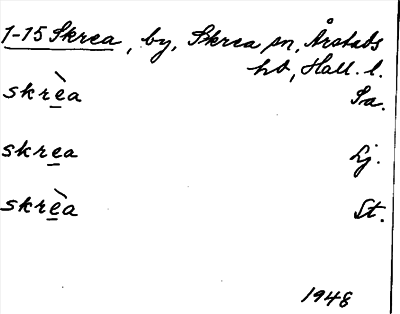 1-15 Skrea, by, Skrea sn, Årstads
hd, Hall. l.
skrèa Sa.
skrea Lj.
skrèa St.
1948